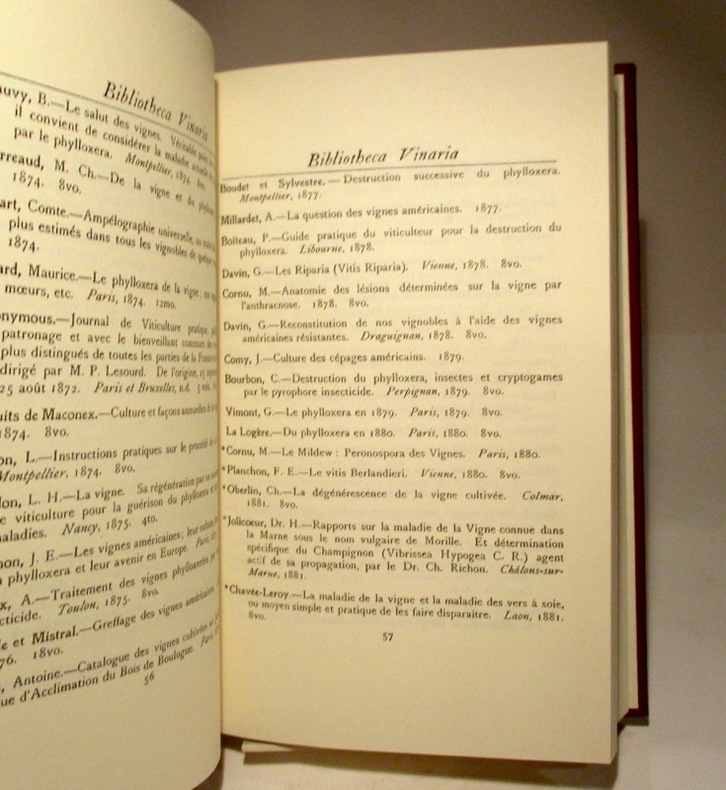 Bibliotheca Vinaria
uvy, B.—Le salut des vignes. Véritable
il convient de considérer la maladie actuelle de
par le phylloxera. Montpellier, 1874. 8vo.
rreaud, M. Ch.—De la vigne et du
1874. 8vo.
art, Comte.—Ampélographie universelle, ou
plus estimés dans tous les vignobles de quelque
1874.
ard, Maurice.—Le phylloxera de la vigne; son
mœurs, etc. Paris, 1874. 12mo.
nymous.—Journal de Viticulture pratique,
patronage et avec le bienveillant concours des
plus distingués de toutes les parties de la France
dirigé par M. P. Lesourd. De l'origine, 25
25 août 1872. Paris et Bruxelles, n.d. 5
uits de Maconex.—Culture et façons annuelles de la
874. 8vo.
on, L.—Instructions pratiques sur le procédé de
Montpellier, 1874. 8vo.
lon, L. H.—La vigne. Sa régénération par
e viticulture pour la guérison du phylloxera et
maladies. Nancy, 1875. 4to.
on, J. E.—Les vignes américaines; leur culture,
phylloxera et leur avenir en Europe.
x, A.—Traitement des vignes phylloxérées par
cticide. Toulon, 1875. 8vo.
e et Mistral.—Greffage des vignes américaines.
76. 18vo.
, Antoine.—Catalogue des vignes cultivées
ue d'Acclimation du Bois de Boulogne.
56
Bibliotheca Vinaria
Boudet et Sylvestre.—Destruction successive du phylloxera.
Montpellier, 1877.
Millardet, A.—La question des vignes américaines. 1877.
Boiteau, P.—Guide pratique du viticulteur pour la destruction du
phylloxera. Libourne, 1878.
Davin, G.—Les Riparia (Vitis Riparia). Vienne, 1878. 8vo.
Cornu, M.—Anatomie des lésions déterminées sur la vigne par
l'anthracnose. 1878. 8vo.
Davin, G.—Reconstitution de nos vignobles à l'aide des vignes
américaines résistantes. Draguignan, 1878. 8vo.
Comy, J.—Culture des cépages américains. 1879.
Bourbon, C.—Destruction du phylloxera, insectes et cryptogames
par le pyrophore insecticide. Perpignan, 1879. 8vo.
Vimont, G.—Le phylloxera en 1879. Paris, 1879. 8vo.
La Logère.—Du phylloxera en 1880. Paris, 1880. 8vo.
*Cornu, M.—Le Mildew: Peronospora des Vignes. Paris, 1880.
*Planchon, F. E.—Le vitis Berlandieri. Vienne, 1880. 8vo.
*Oberlin, Ch.—La dégénérescence de la vigne cultivée. Colmar,
1881. 8vo.
*Jolicoeur, Dr. H.—Rapports sur la maladie de la Vigne connue dans
la Marne sous le nom vulgaire de Morille. Et détermination
spécifique du Champignon (Vibrissea Hypogea C. R.) agent
actif de sa propagation, par le Dr. Ch. Richon. Châlons-sur-
Marne, 1881.
*Chavée-Leroy.—La maladie de la vigne et la maladie des vers à soie,
ou moyen simple et pratique de les faire disparaitre. Laon, 1881.
8vo.
57